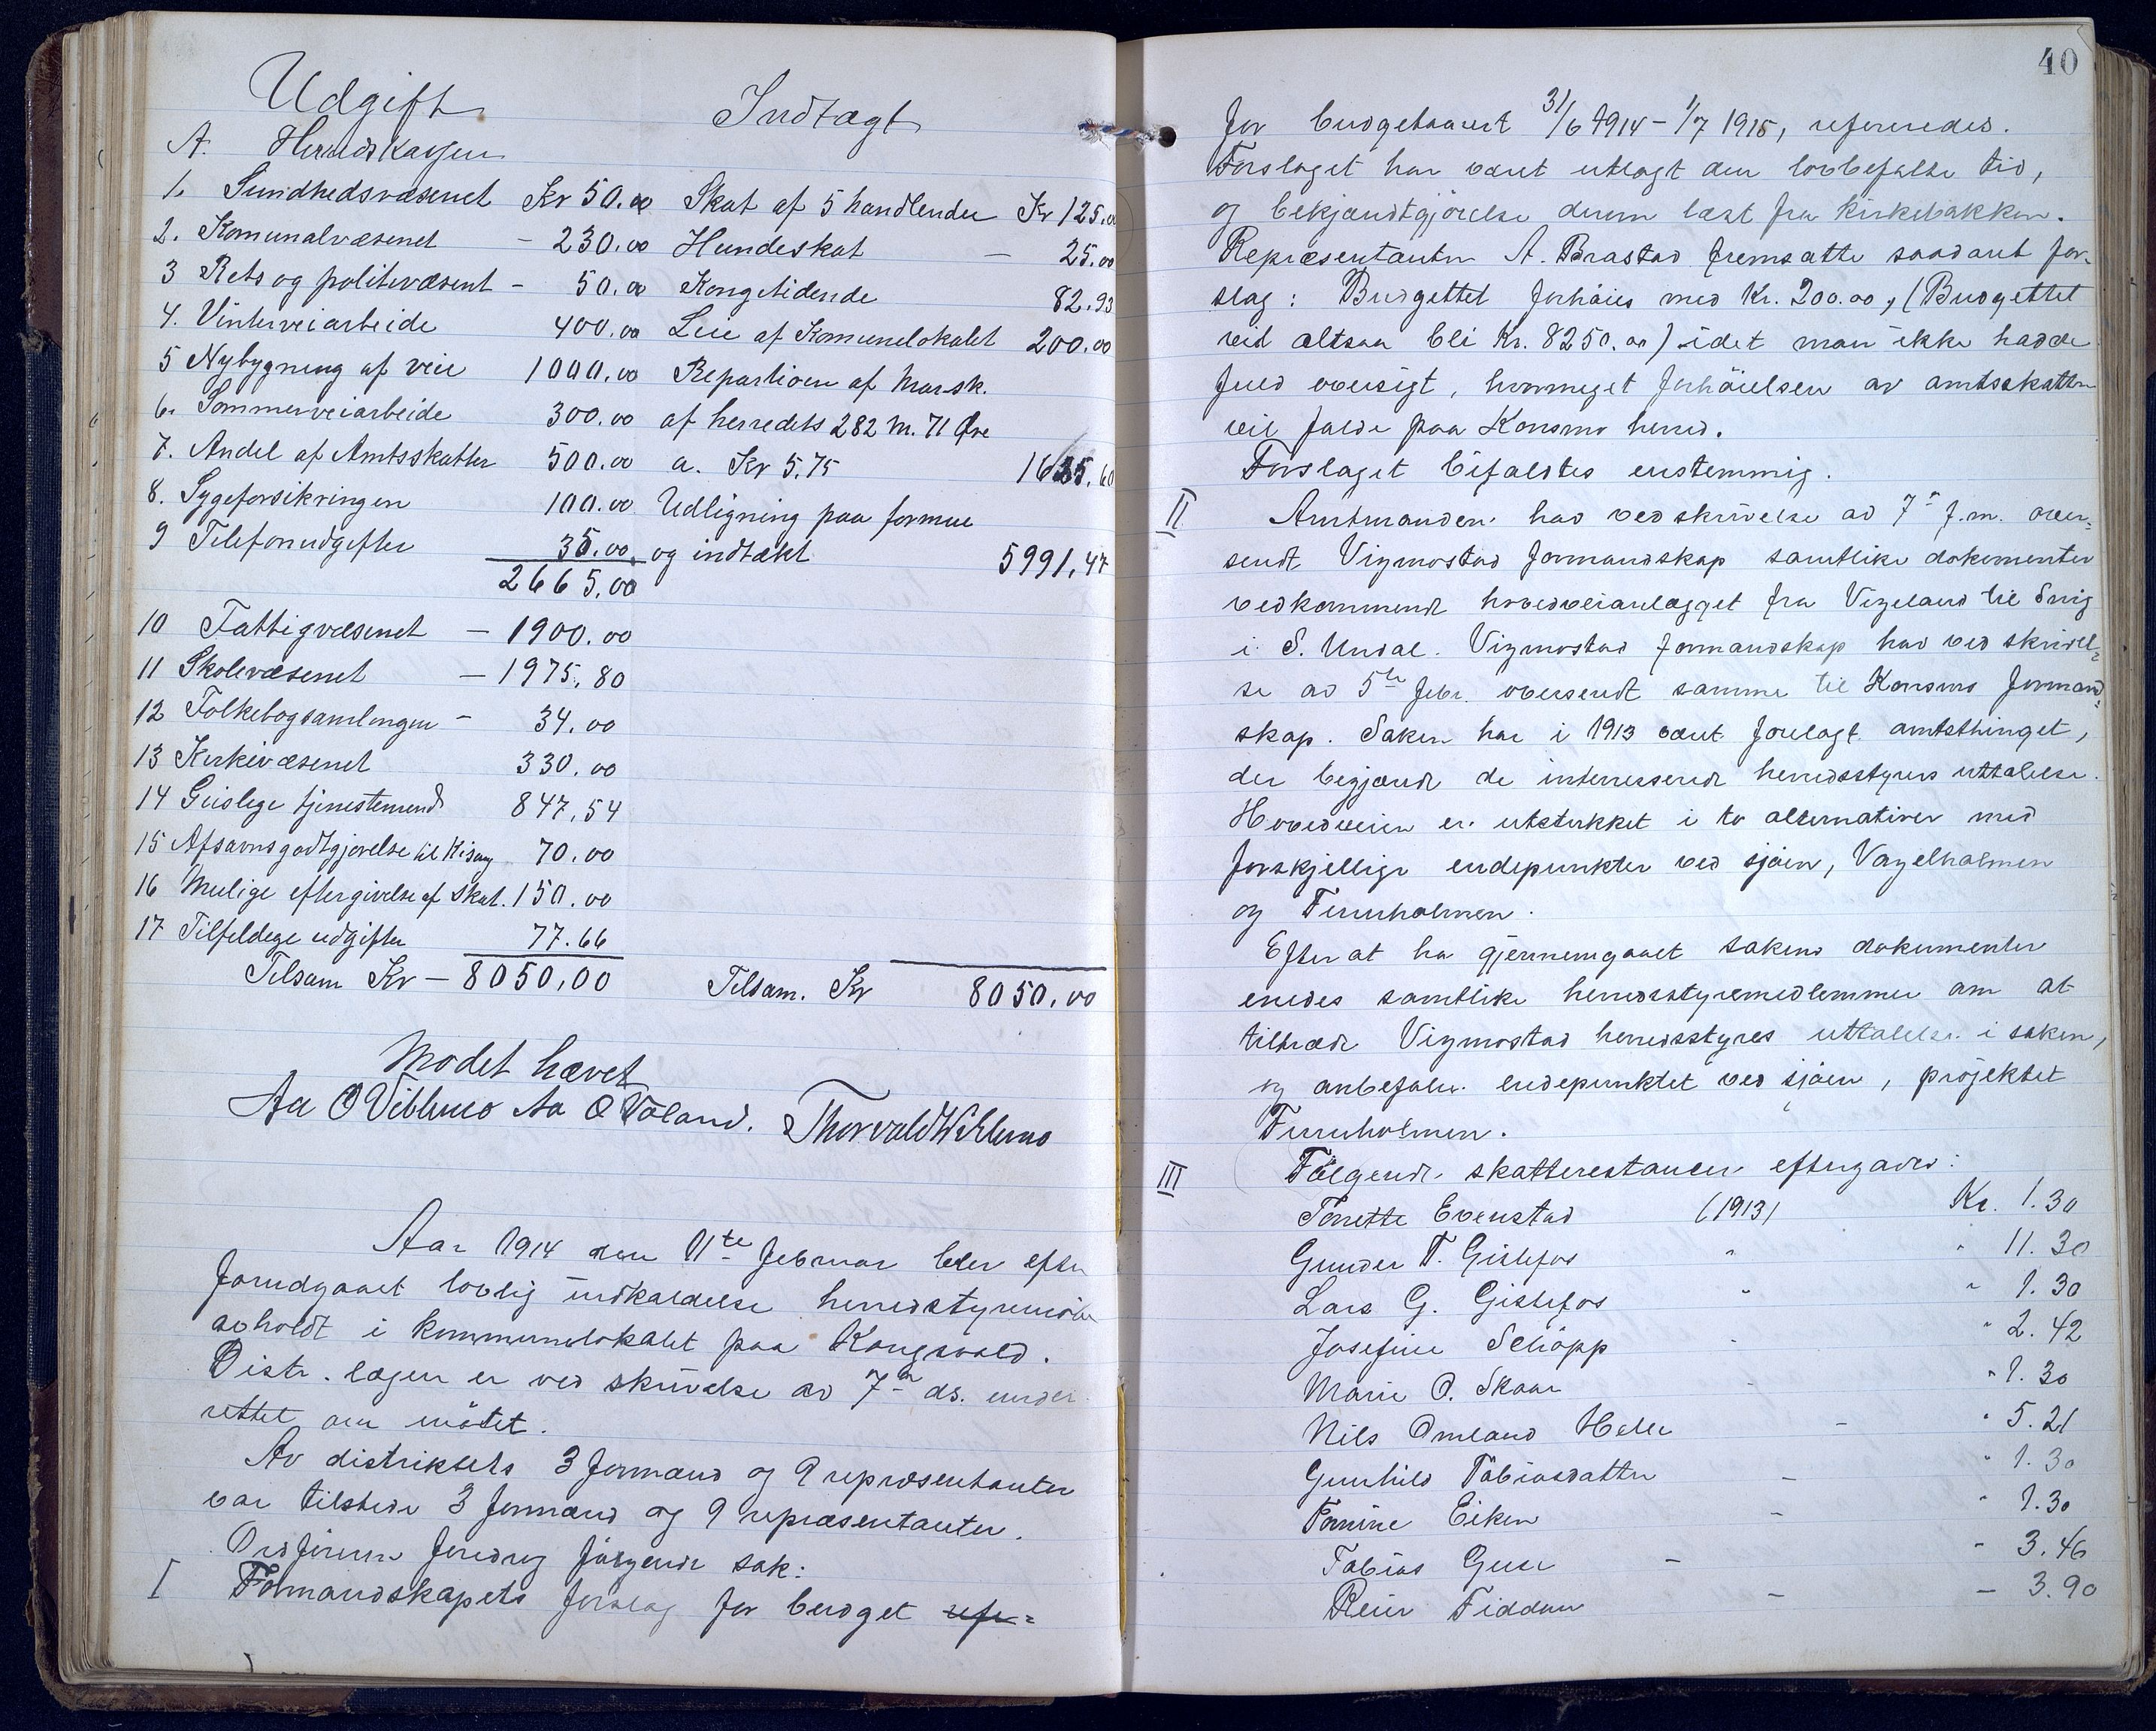 Udgift Indtægt
A. Herredskassen
1. Sundhedsvæsenet Kr 50.00 Skat af 5 handlende Kr 125.00
2. Komunalvæsenet - 230.00 Hundeskat - 25.00
3 Rets og politivæsent - 50.00 Kongetidende 82.93
4. Vinterveiarbeide 400.00 Leie af Komunelokalet 200.00
5 Nybygning af veie 1000.00 Repartioen af Marsk.
6. Sommerveiarbeide 300.00 af herredets 282 M. 71 Øre
7. Andel af Amtsskatten 500.00 a. Kr 5.75 1625.60
8. Sygeforsikringen 100.00 Udligning paa formue
9 Telefonudgifter 35.00 og indtækt 5991,47
2665,00
10 Fattigvæsenet - 1900.00
11 Skolevæsenet - 1975.80
12 Folkebogsamlingen - 34.00
13 Kirkevæsenet 330.00
14 Geislege tjenestemend 847,54
15 Afsavnsgodtgjørelse til 70.00
16 Mulige eftergivelse af Skat. 150.00
17 Tilfeldege udgifter 77.66
Tilsam Kr - 8050,00 Tilsam. Kr 8050.00
Modet hævet
Aa O Vibluno Aa O Voland. Thorvald Wibluno
Aar 1914 den 11te februar blev efter
forudgaaet lovlig indkaldelse herredstyremöte
avholdt i kommunelokalet paa Kongsvold.
Distr. lægen er ved skrivelse av 7de ds. under
rettet om mötet.
Av distriktets 3 formænd og 9 repræsentanter
var tilstede 3 formænd og 9 repræsentanter.
Ordföreren foredrog fölgende sak:
I Formandskapets forslag for budget refe=
40
for budgetaaret 31/6 1914 - 1/7 1915, refereredes.
Forslaget har været utlagt den lovbefalte tid,
og bekjændtgjörelse derom læst fra kirkebakken.
Repræsentanten A. Brastad fremsatte saadant for-
slag: Budgettet forhöies med Kr. 200.00, (Budgettet
vil altsaa bli Kr. 8250.00) idet man ikke hadde
fuld oversigt, hvormeget forhöielsen av amtsskatten
vil falde paa Konsmo herred.
Forslaget bifaldtes enstemmig.
II Amtmanden har ved skrivelse av 7de f.m. over-
sendt Vigmostad formandskap samtlike dokumenter
vedkommende hovedveianlægget fra Vigeland til Snig
i S. Undal. Vigmostad formandskap har ved skrivel-
se av 5te febr. oversendt samme til Konsmo formand-
skap. Saken har i 1913 været forelagt amtsthinget,
der begjærede de interesserede herredsstyrers uttalelse.
Hovedveien er utstukket i to alternativer med
forskjellige endepunkter ved sjöen, Vagelholmen
og Furuholmen.
Efter at ha gjennemgaaet sakens dokumenter
enedes samtlike herredsstyremedlemmer om at
tiltræde Vigmostad herredsstyres uttalelse i saken,
og anbefaler endepunktet ved sjöen, pröjektet
Furuholmen.
III Fölgende skatterestancer eftergaves:
Tonette Evenstad (1913) Kr. 1.30
Gunder T. Gislefos " " 11.30
Lars G. Gislefos " " 1.30
Josefine Schöpp " " 2.42
Marie O. Skaar - " 1.30
Nils Omland Helle - " 5.21
Gunhild Tobiasdatter - " 1.30
Tomine Eiken - " 1.30
Tobias - " 3.46
Reier Fiddan - - 3.90